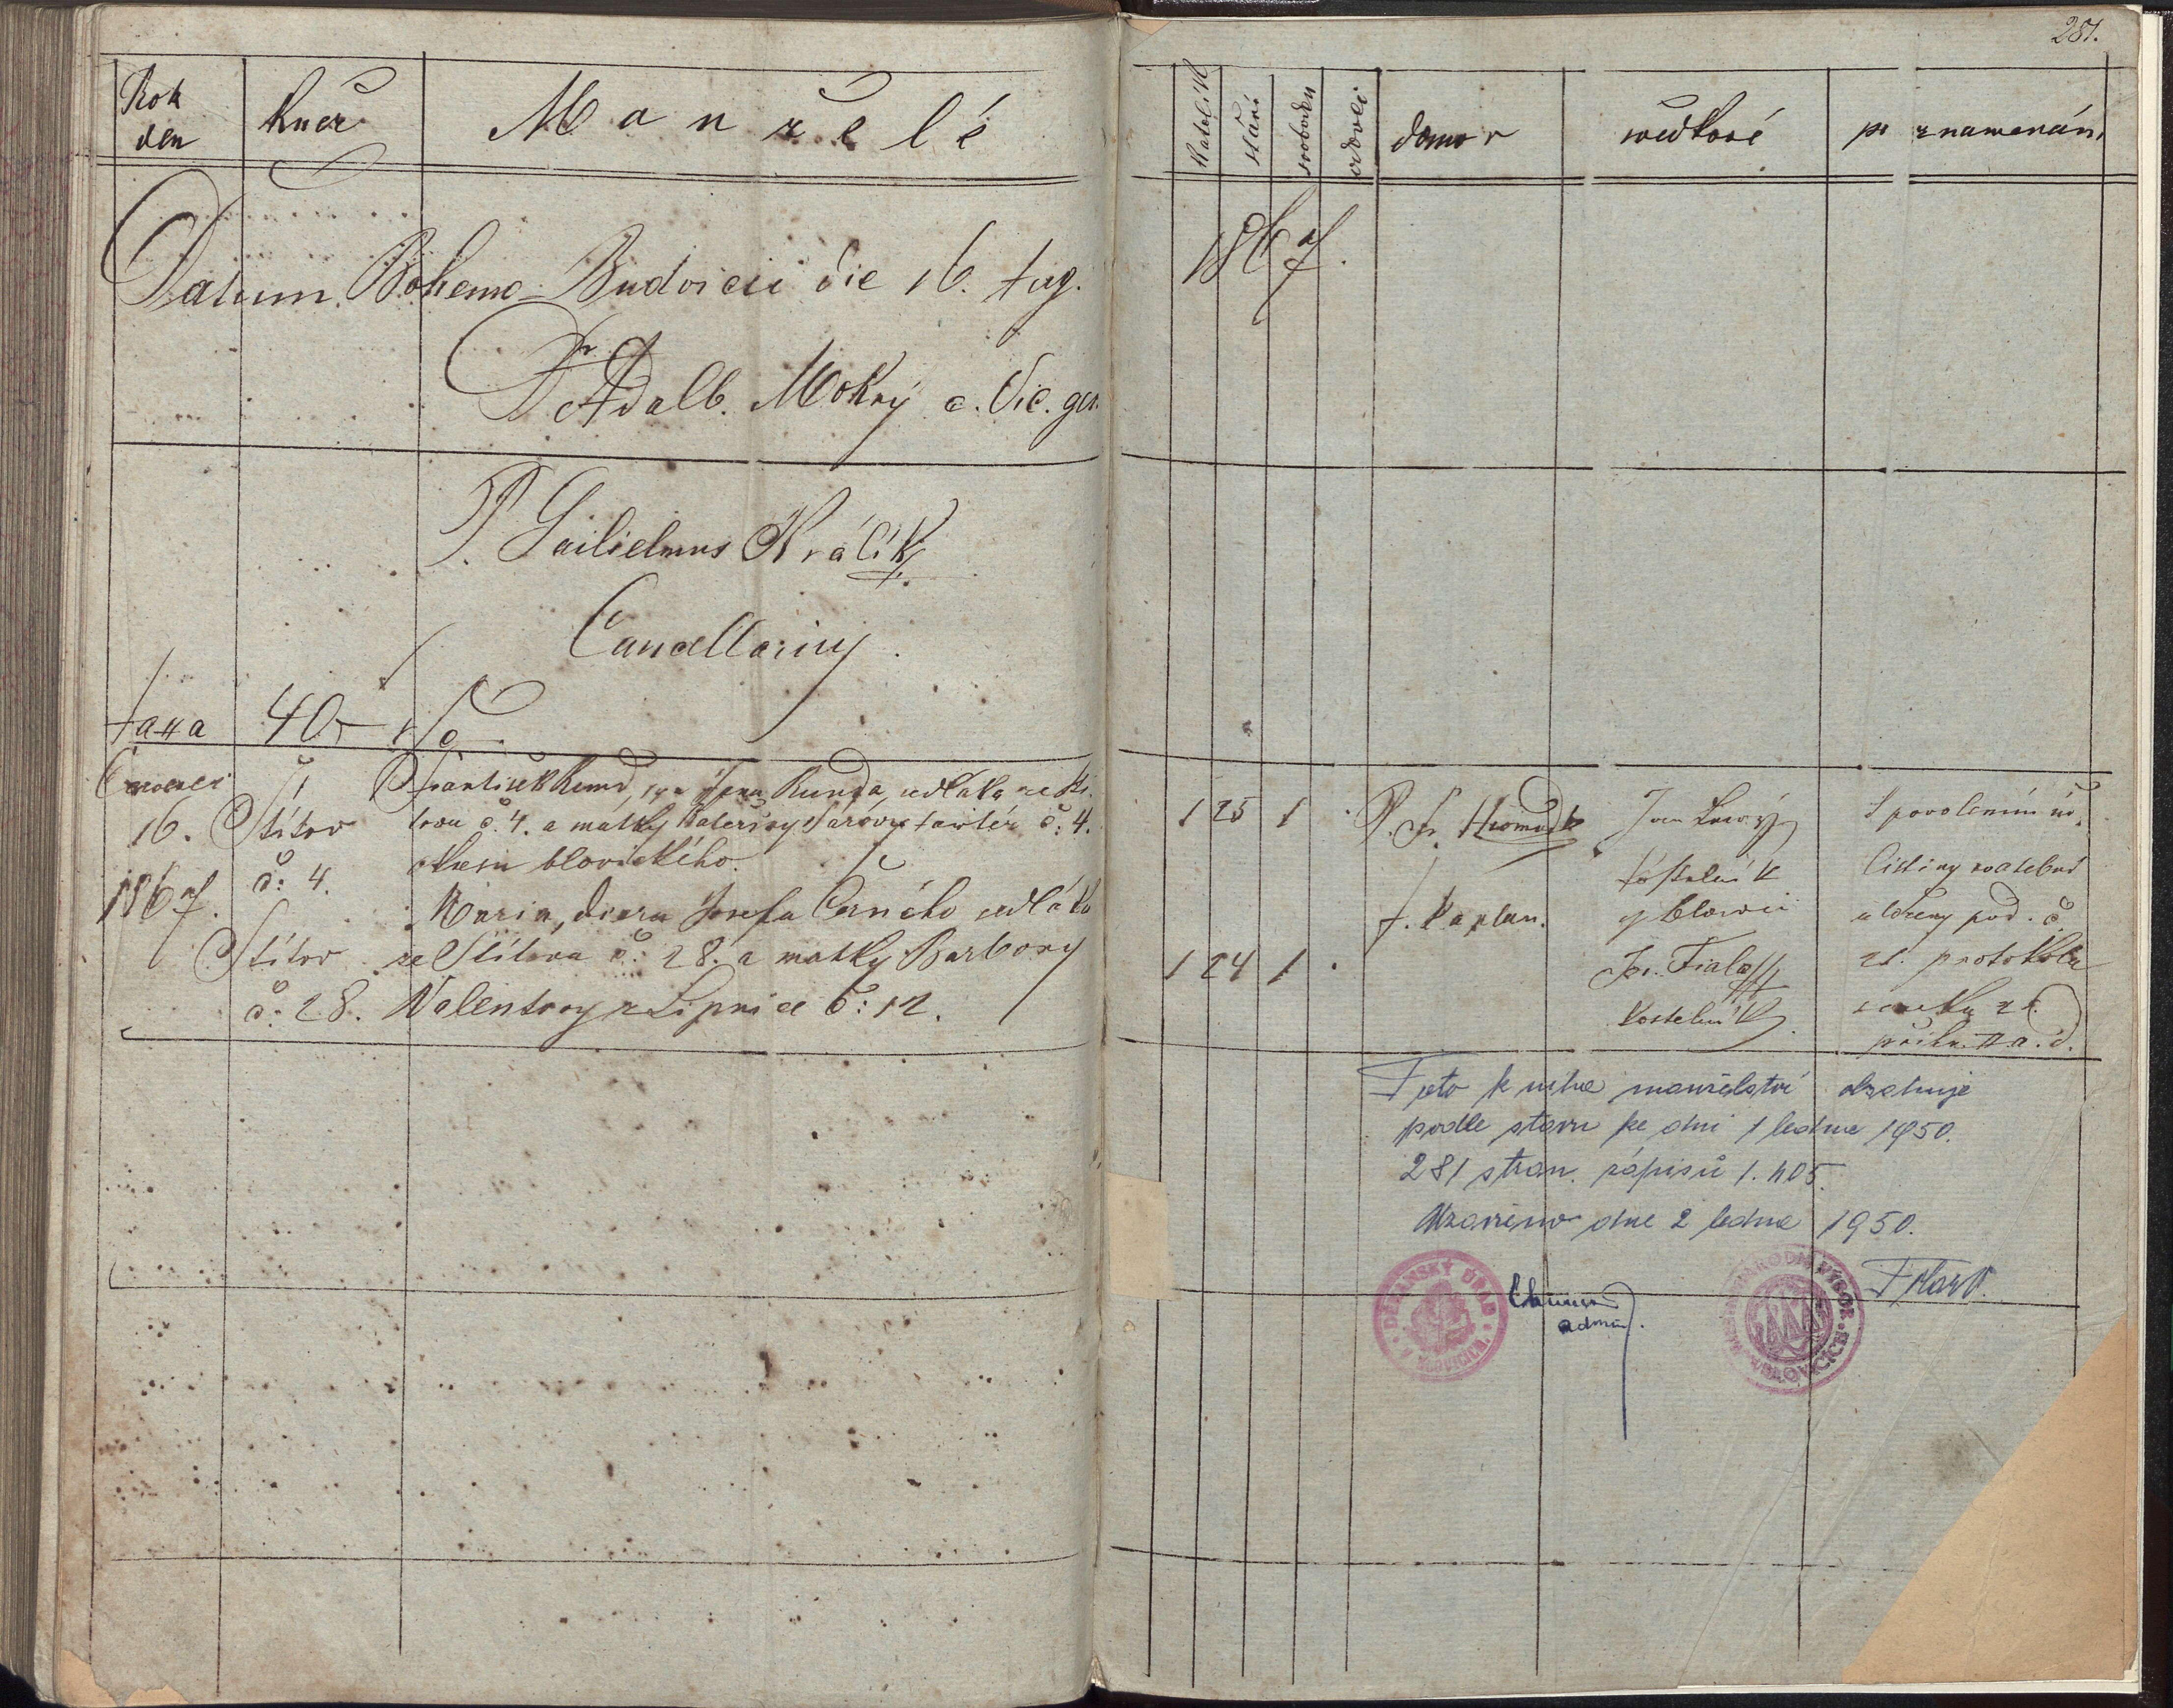 281.
Rok
den
kněz
Manželé
Katolík
stáří
svobodný
vdovci
domov
svědkové
poznamenání
Datum Bohemo-Budvicii die 16. Aug. 1867.
Dr Adalb. Mokrý c. Vic. gen.
P. Guilielmus Králík
Cancellarius.
taxa 40
16.
1867.
Štítov
č: 4.
František Kund, syn Jana Kunda, sedláka ze Ští-
tova č. 4. a matky Kateřiny
č: 4.
okresu blovického.
Štítov
č: 28.
Maria, dcera Josefa Černého sedláka
ze Štítova č: 28. a matky Barbory
Valentovy z Lipnice č: 12.
1 25 1
1 24 1
P. Fr. Hromad
f. kaplan.
Jan
z Blovic
Jos. Fiala
kostelník
S povolením
listiny svatební
uloženy pod. č.
21. protokolu
Tato kniha manželství obsahuje
podle stavu ke dni 1 ledna 1950.
281 stran. zápisů 1.405.
Uzavřeno dne 2 ledna 1950.
DĚKANSKÝ ÚŘAD
V BLOVICÍCH
admin.
NÁRODNÍ VÝBOR
V BLOVICÍCH